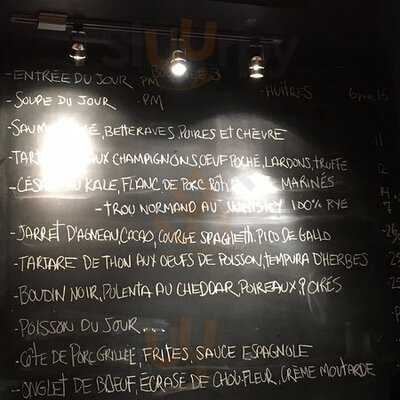 -ENTRÉE DU JOUR PM
-HUÎTRES 6
-SOUPE DU JOUR -PM
BETTERAVES, POIRES ET CHÈVRE
CHAMPIGNONS, OEUF POCHÉ, LARDONS, TRUFFE
KALE, FLANC DE PORC MARINÉS
-TROU NORMAND AU WHISKEY 100% RYE
-JARRET D'AGNEAU, CACAO, COURGE SPAGHETTI, PICO DE GALLO
-TARTARE DE THON AUX OEUFS DE POISSON, TEMPURA D'HERBES
-BOUDIN NOIR, POLENTA AU CHEDDAR, POIREAUX, POIRES
-POISSON DU JOUR...
-CÔTE DE PORC GRILLÉE, FRITES, SAUCE ESPAGNOLE
-ONGLET DE BOEUF, ÉCRASÉ DE CHOU-FLEUR, CRÈME MOUTARDE